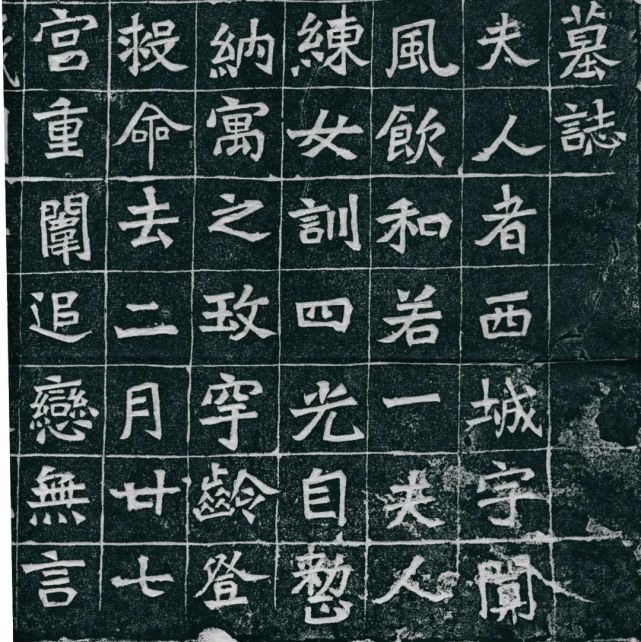 墓誌
夫人者西城字聞
風飲和若一夫人
練女訓四光自
納寓之玫穹齡登
命去二月廿七
宮重闈追戀無言